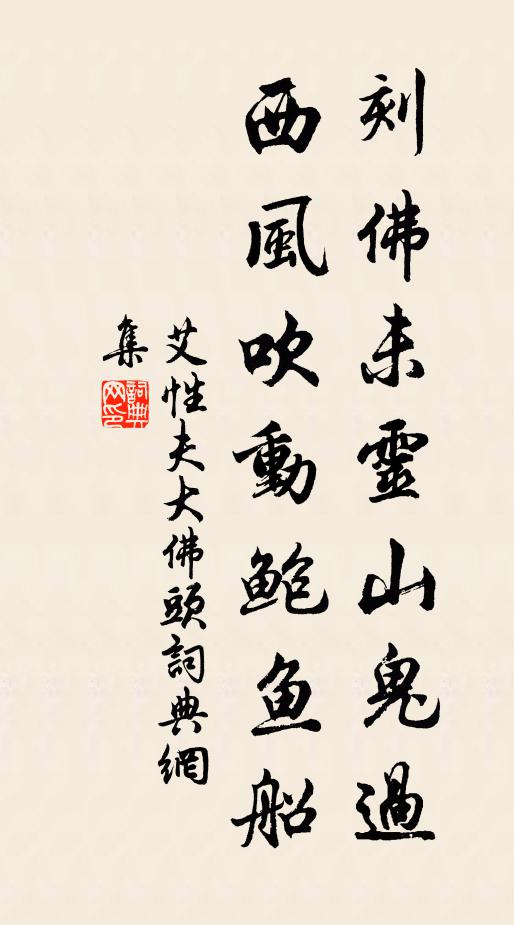 刻佛未靈山鬼過
西風吹動鮑鱼船
艾性夫大佛頭詞典網
集
詞典
网印